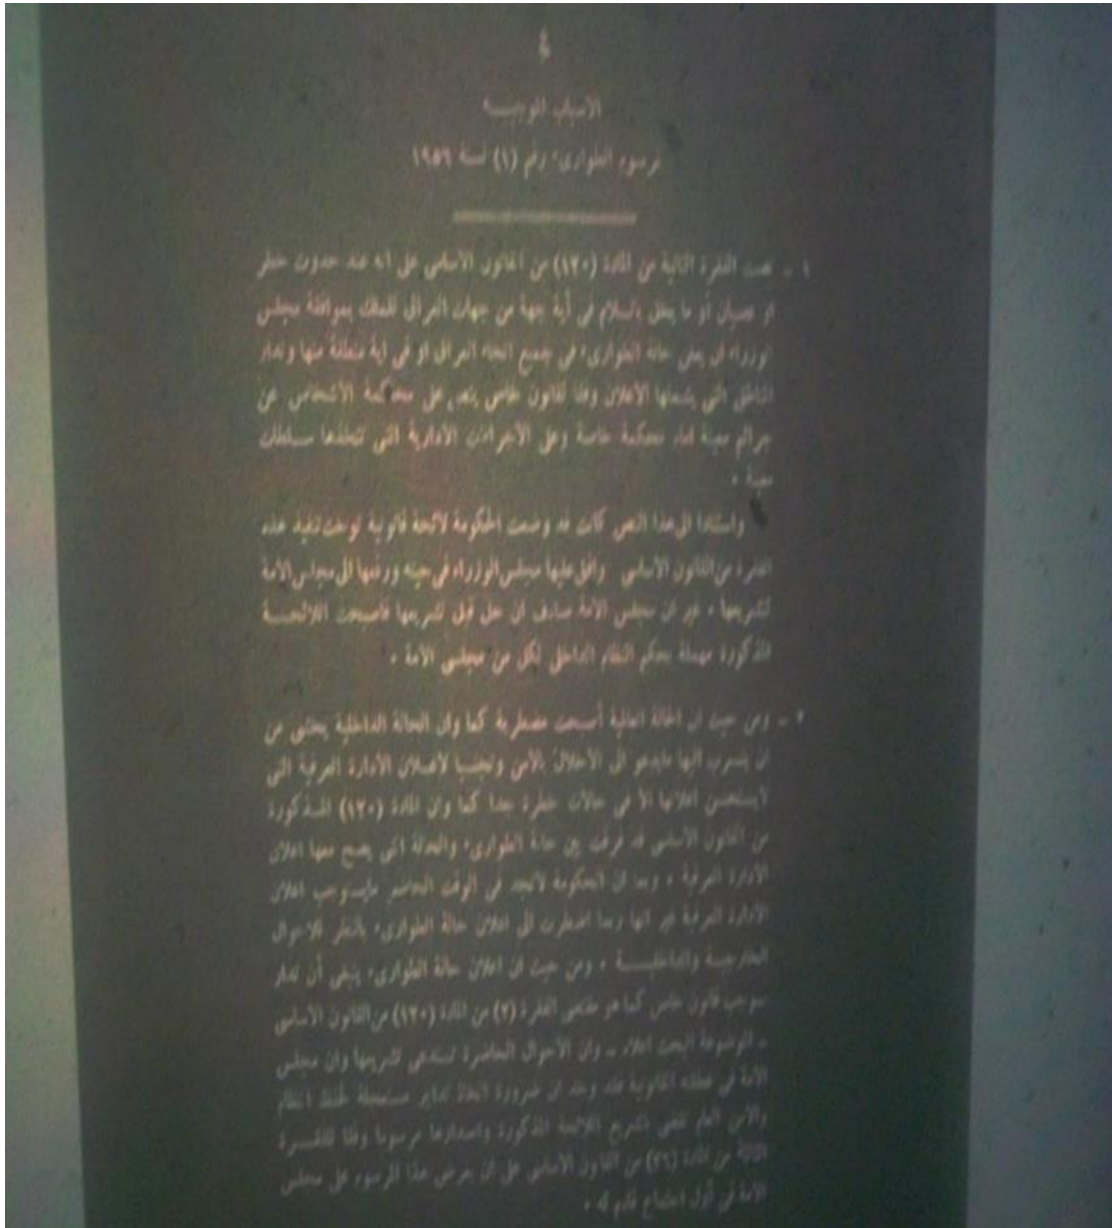 ٤
الأسباب الموجبـــة
لمرسوم الطوارىء رقم (١) لسنة ١٩٥٦
١ - نصت الفقرة الثانية من المادة (١٢٠) من القانون الاساسي على انه عند حدوث خطر
او عصيان أو ما يخل بالسلام في أية جهة من جهات العراق فللملك بموافقة مجلس
الوزراء ان يعلن حالة الطوارىء في جميع انحاء العراق او في اية منطقة منها وتدار
المناطق التي يشملها الاعلان وفقا لقانون خاص ينص على محاكمة الأشخاص عن
جرائم معينة امام محكمة خاصة وعلى الاجراءات الادارية التي تتخذها سـلطات
معينة ٠
واستنادا الى هذا النص كانت قد وضعت الحكومة لائحة قانونية توخت تنفيذ هذه
الفقرة من القانون الاساسي وافق عليها مجلس الوزراء في حينه ورفعها الى مجلس الامة
لتشريعها ٠ غير ان مجلس الأمة صادف ان حل قبل تشريعها فأصبحت اللائحـــة
المذكورة مهملة بحكم النظام الداخلي لكل من مجلسي الأمة ٠
٢ - ومن حيث ان الحالة العالمية أصبحت مضطربة كما وان الحالة الداخلية يخشى من
ان يتسرب اليها مايدعو الى الاخلال بالأمن وتجنبا لاعـلان الادارة العرفية التي
لايستحسن اعلانها الا في حالات خطرة جدا كما وان المادة (١٢٠) المـذكورة
من القانون الأساسي قد فرقت بين حالة الطوارىء والحالة التي يصح معها اعلان
الادارة العرفية ٠ وبما ان الحكومة لاتجد في الوقت الحاضر مايستوجب اعلان
الادارة العرفية غير انها ربما اضطرت الى اعلان حالة الطوارىء بالنظر للاحوال
الخارجيـة والداخليـــة ٠ ومن حيث ان اعلان حالة الطوارىء ينبغي أن تدار
بموجب قانون خاص كما هو مقتضى الفقرة (٢) من المادة (١٢٠) من القانون الأساسي
- الموضوعة البحث اعلاه - وان الأحوال الحاضرة تستدعي تشريعها وان مجلس
الأمة في عطلته القانونية فقد وجد ان ضرورة اتخاذ تدابير مستعجلة لحفظ النظام
والأمن العام تقضي بتشريع اللائحة المذكورة واصدارها مرسوما وفقا للفقـــرة
من المادة (٢٦) من القانون الأساسي على ان يعرض هذا المرسوم على مجلس
الأمة في أول اجتماع قادم له ٠